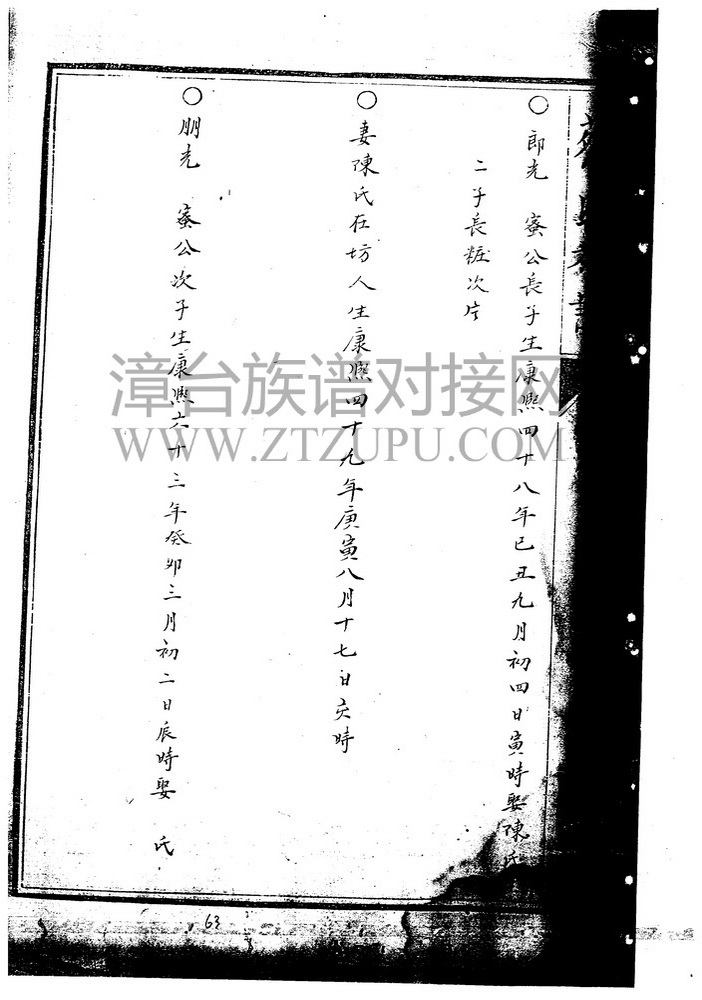 ○郎光　蜜公長子生康熈四十八年己丑九月初四日寅時娶陳氏
二子長粧次
○妻陳氏在坊人生康熈四十九年庚寅八月十七日亥時
○朋光　蜜公次子生康熈六十三年癸卯三月初二日辰時娶　氏
漳台族谱对接网
WWW.ZTZUPU.COM
63